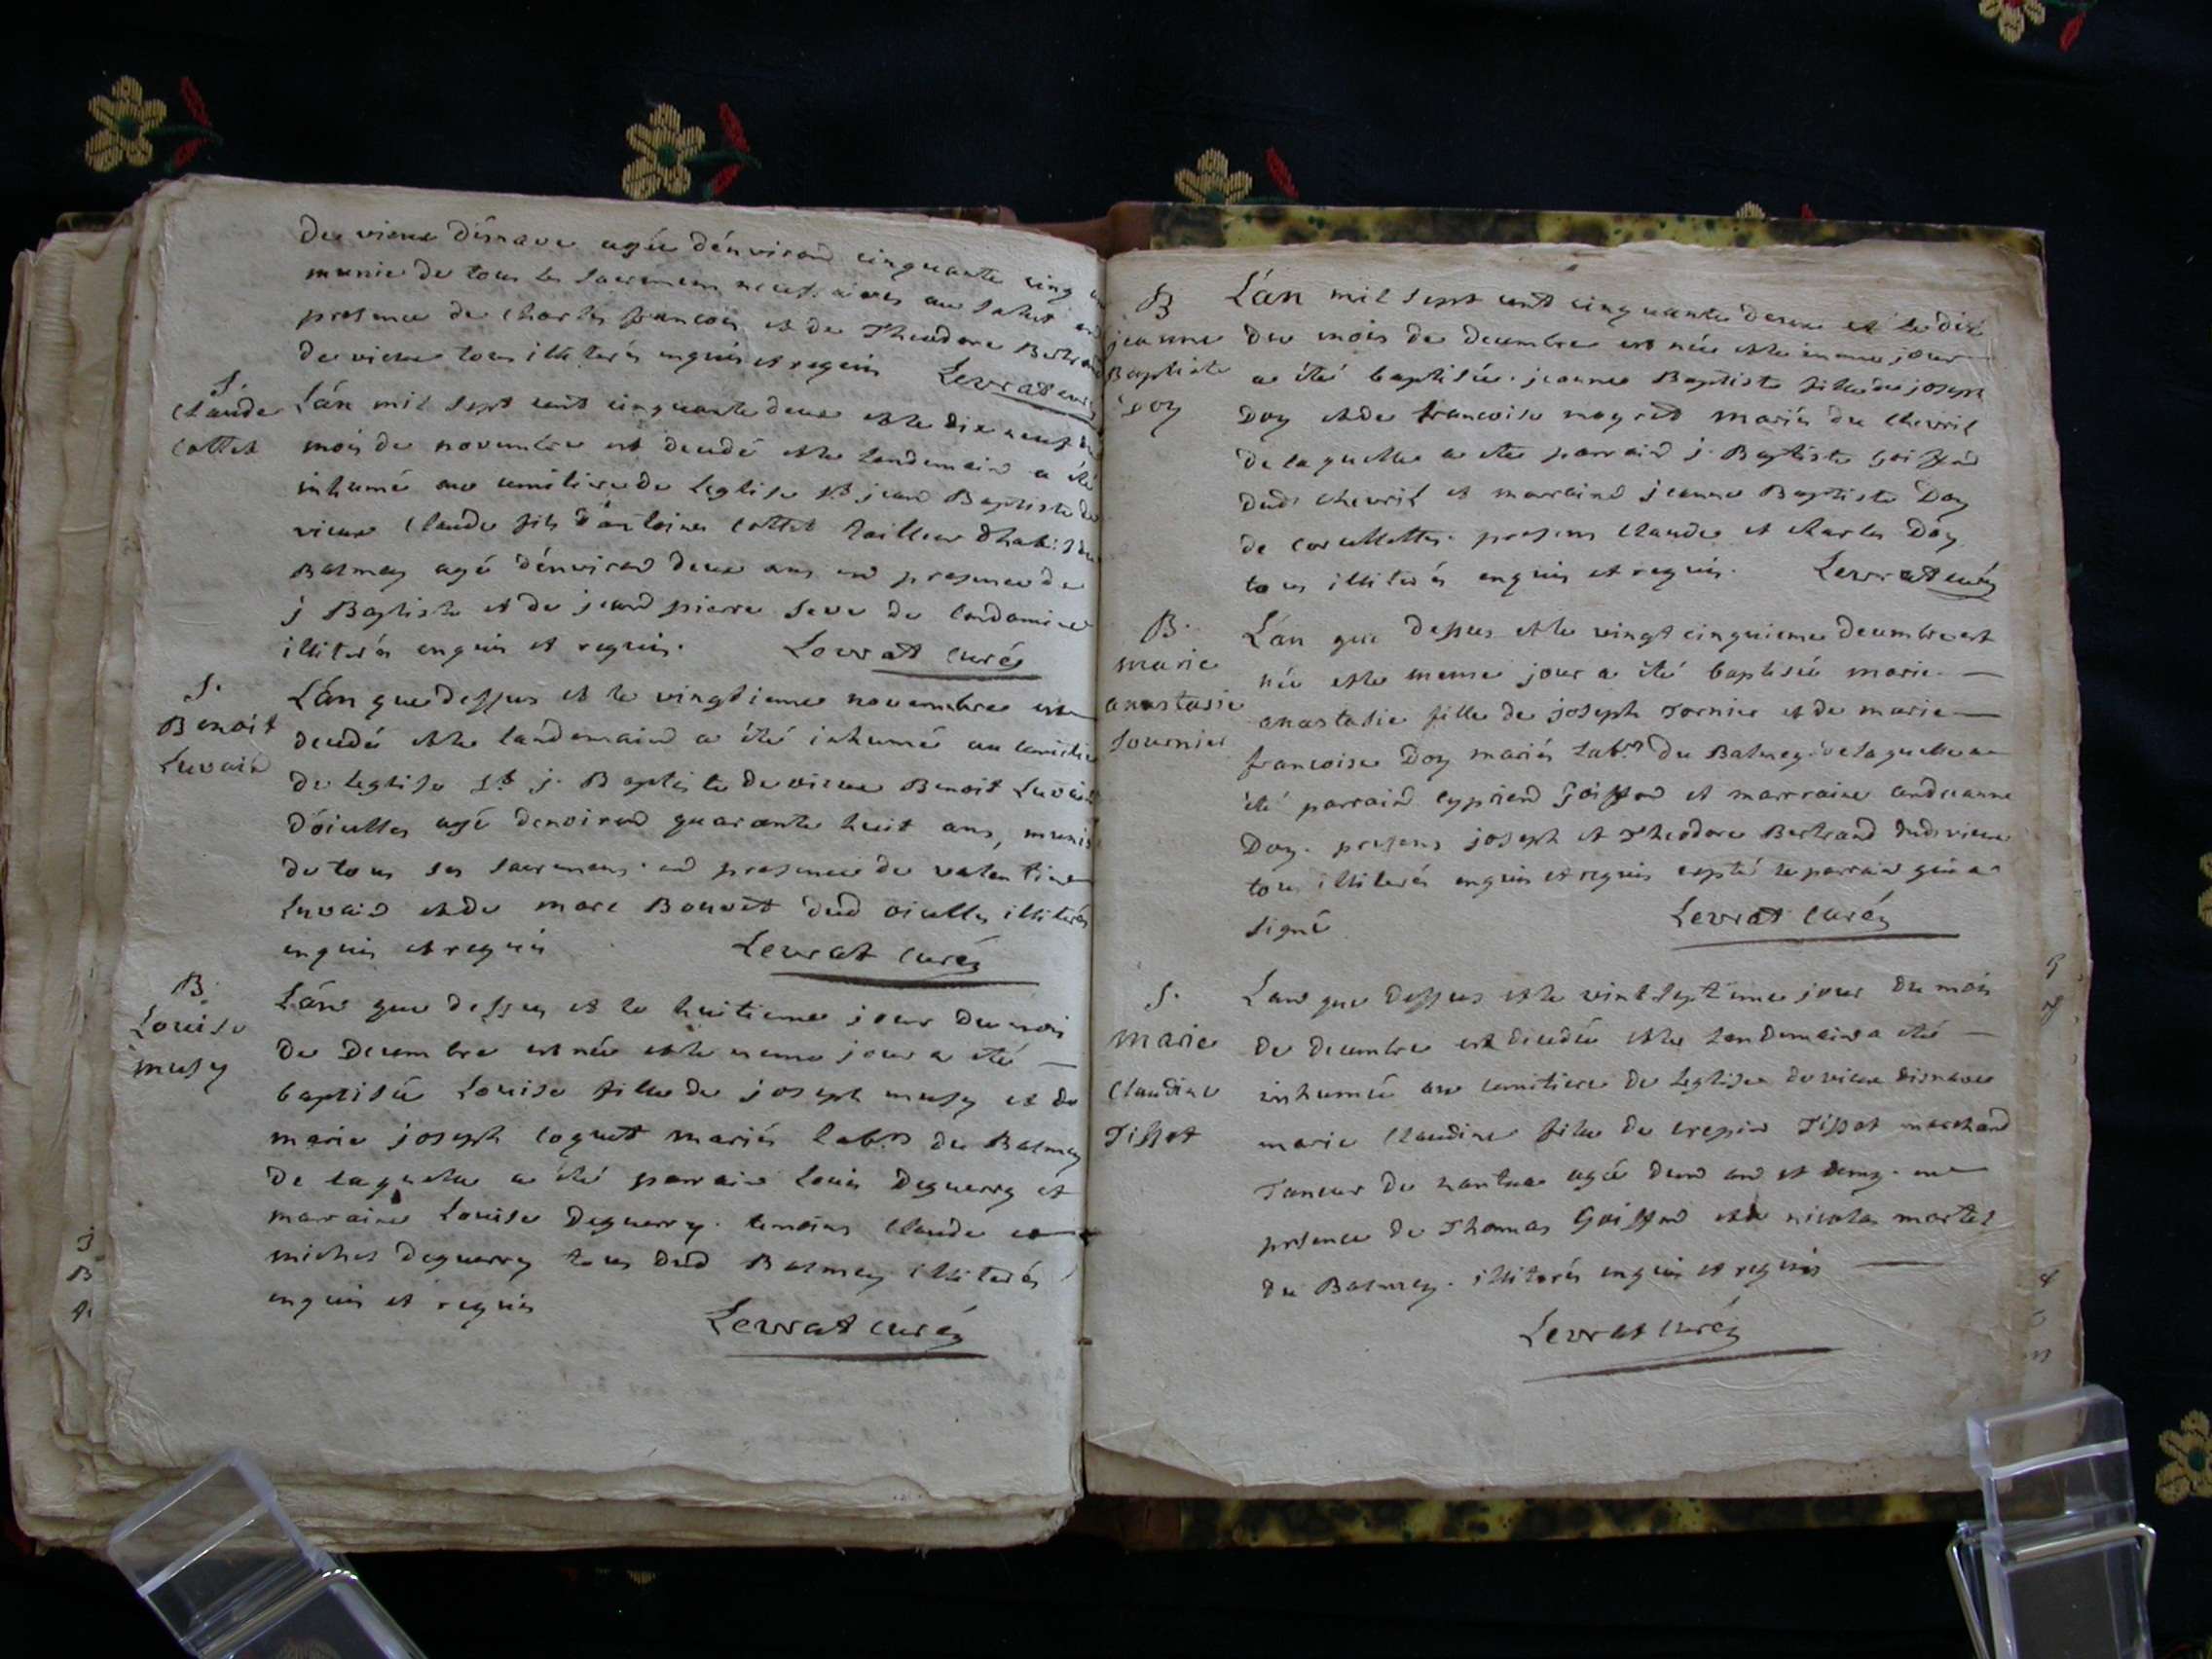 de vieux d'isnave agée d'énviron cinquante cinq
munie de tous les sacremens necessaires au salut en
presence de charles francois et de Theodore Bertrand
de vieux tous illiterés enquis et requis Levrat curé
S.
Claude
Cottet
L'án mil sept cent cinquante deux et le dix neuf du
mois de novembre est decedé et le landemain a été
inhumé au cimitiere de leglise St jean Baptiste de
vieux Claude fils d'antoine Cottet tailleur dhabis du
Balmay agé d'énviron deux ans en presence de
j Baptiste et de jean pierre seve de
illiterés enquis et requis. Levrat curé
S.
Benoit
Luvain
L'án que dessus et le vingtieme novembre est
decedé et le landemain a été inhumé au cimitie
de leglise St j. Baptiste de vieux Benoit Luvain
d'oicelles agé denviron quarante huit ans, munis
de tous ses sacremens en presence de valentine
Luvain et de marc Bouvet dud oicelles illiterés
enquis et requis Levrat curé
B.
Louise
musy
L'án que dessus et le huitieme jour du mois
de Decembre est née et le meme jour a été
baptisée Louise fille de joseph musy et de
marie joseph coquet mariés labrs du Balmay
de laquelle a été parrain Louis Deguerry et
marraine Louise Deguerry. temoins Claude et
michel Deguerry tous dud Balmay illiterés
enquis et requis
Levrat curé
B
jeanne
Baptiste
Doy
L'án mil sept cent cinquante deux et le dix
du mois de decembre est née et le meme jour
a été baptisée jeanne Baptiste fille de joseph
Doy et de francoise mogret mariés du Chevril
de laquelle a été parrain j. Baptiste Goiffon
dud. chevril et marraine jeanne Baptiste Doy
de corcellettes. presens Claude et charles Doy
tous illiterés enquis et requis. Levrat curé
B.
marie
anastasie
tournier
L'án que dessus et le vingt cinquieme decembre est
née et le meme jour a été baptisée marie
anastasie fille de joseph Tornier et de marie
francoise Doy mariés labrs du Balmey. de laquelle a
été parrain cyprien Goiffon et marraine andreanne
Doy. presens joseph et Theodore Bertrand dud vieux
tous illiterés enquis et requis excpté le parrain qui a
signé Levrat curé
S.
marie
claudine
Tissot
L'an que dessus et le vint septieme jour du mois
de decembre est decedée et le landemain a été
inhumée au cimitiere de leglise de vieux disnave
marie Claudine fille de crepin Tissot marchand
Tanneur de nantua agée dun an et demy. en
presence de Thomas Goiffon et de nicolas martel
du Balmey. illiterés enquis et requis
Levrat curé